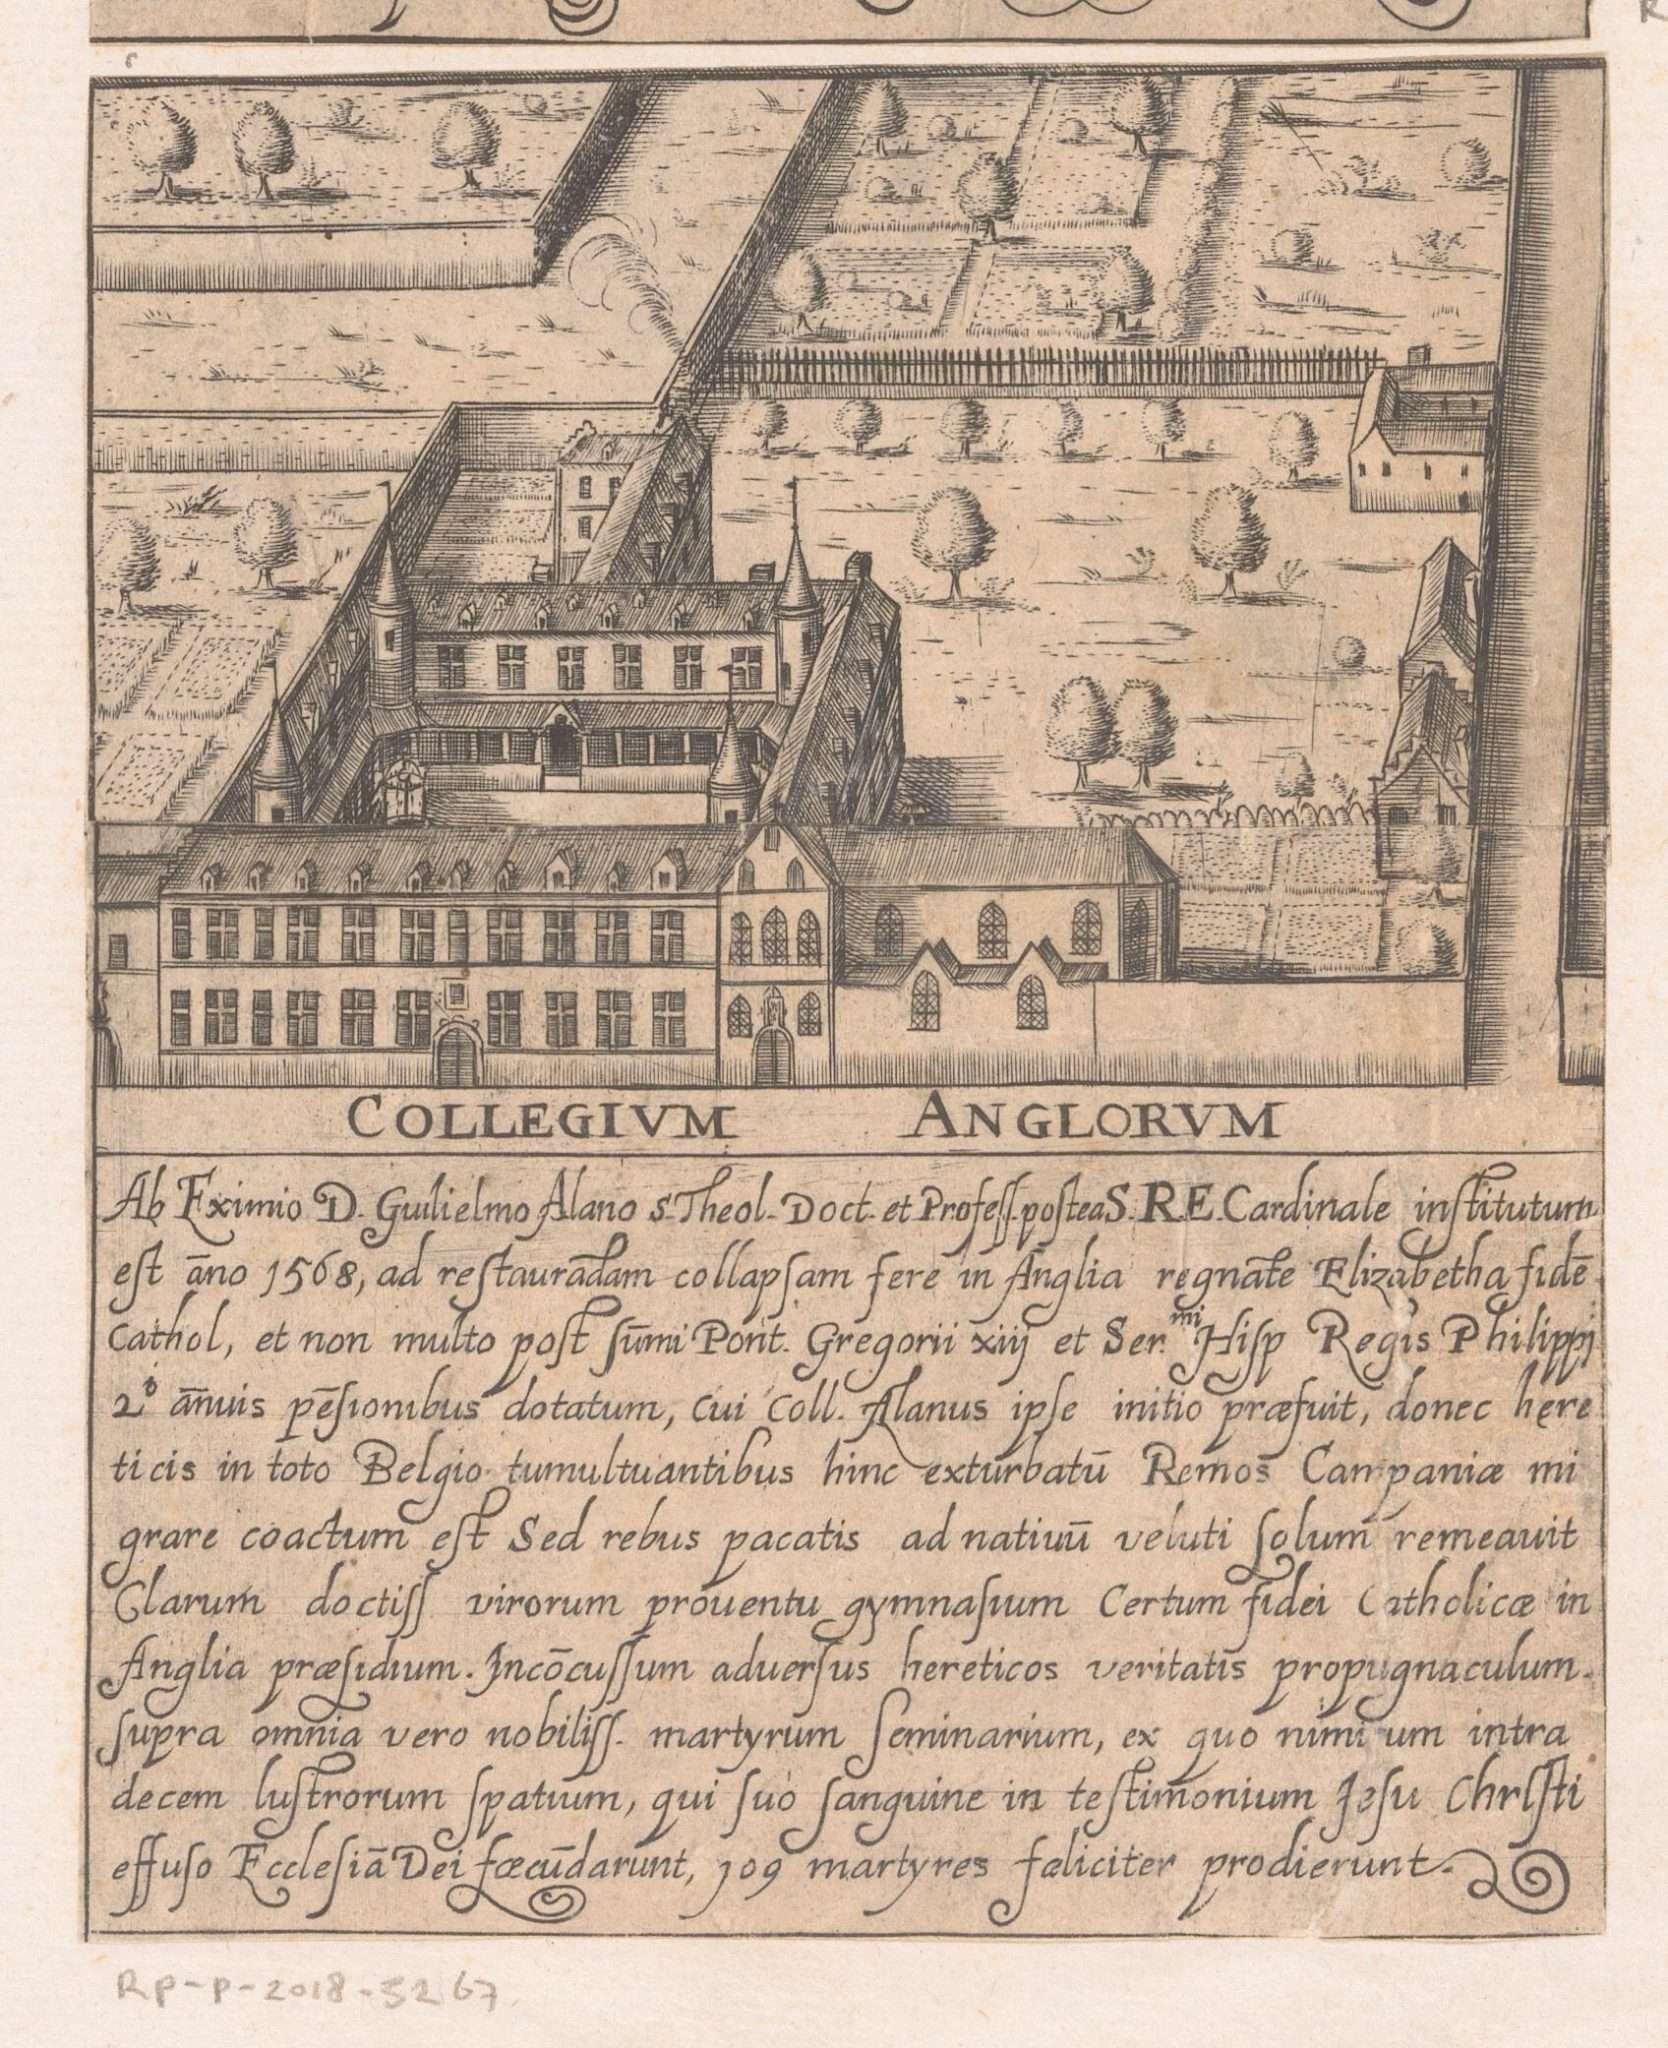 COLLEGIVM ANGLORVM
Ab Eximio D. Guilielmo Alano S. Theol. Doct. et Profeſſ. poſtea S. R E. Cardinale inſtitutum
eſt āno 1568, ad reſtaurādam collapſam fere in Anglia regnāte Elizabetha fidē
Cathol, et non multo poſt ſūmi Pont. Gregorii xiij et Ser.mi Hiſp Regis Philippi
2º āñuis pēſionibus dotatum, cui Coll. Alanus ipſe initio præfuit, donec hęre
ticis in toto Belgio tumultuantibus hinc exturbatū Remos Campaniæ mi
grare coactum eſt Sed rebus pacatis ad natiuū veluti ſolum remeauit
Clarum doctiſſ virorum prouentu gymnaſium Certum fidei Catholicæ in
Anglia præſidium. Incōcuſſum aduerſus hereticos veritatis propugnaculum.
ſupra omnia vero nobiliſſ. martyrum ſeminarium, ex quo nimirum intra
decem luſtrorum ſpatium, qui ſuo ſanguine in teſtimonium Jeſu Chriſti
effuſo Eccleſiā Dei fœcūdarunt, 109 martyres fœliciter prodierunt.
RP-P-2018-3267